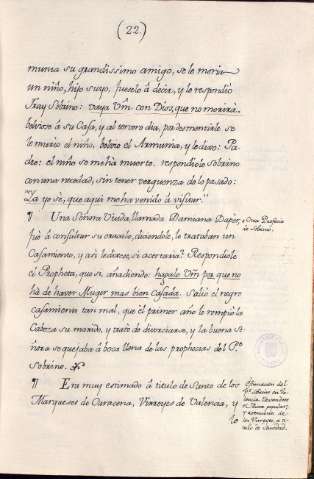 (22.)
munia su grandissimo amigo, se le moria
un niño, hijo suyo, fueselo à decir, y le respondio
Fray Sobrino: vaya Vm. con Dios, que no morirà.
bolviose à su Casa, y al tercero dia, para desmentirle se
le murio el niño, bolvio el Armunia, y le dixo: Pa-
dre: el niño se me hà muerto. respondiole Sobrino
con una necedad, sin tener verguenza de lo pasado:
Ya yo se, que aqui mo ha venido à visitar."
¶ Una Señora Viuda, llamada Damiana
fuè à consultar su oraculo, diciendole, le trataban un
Casamiento, y asi le dixese, si acertaria? Respondiole
el Propheta, que si, añadiendo: hagalo Vm. porque no
hà de haver Muger mas bien Casada. Saliò el negro
casamiento tan mal, que el primer año le rompiò la
Cabeza su marido, y tratò de divorciarse, y la buena Se-
ñora se quejaba à boca llena de las prophecias del Pe.
Sobrino.
¶ Era muy estimado à titulo de Santo de los
Marqueses de Caracena, Virreyes de Valencia, y
le
Otra Profecia
de Sobrino.
del
Pe. Sobrino en Va-
lencia
y estimacion de
los Virreyes, a ti-
tulo de Santidad.